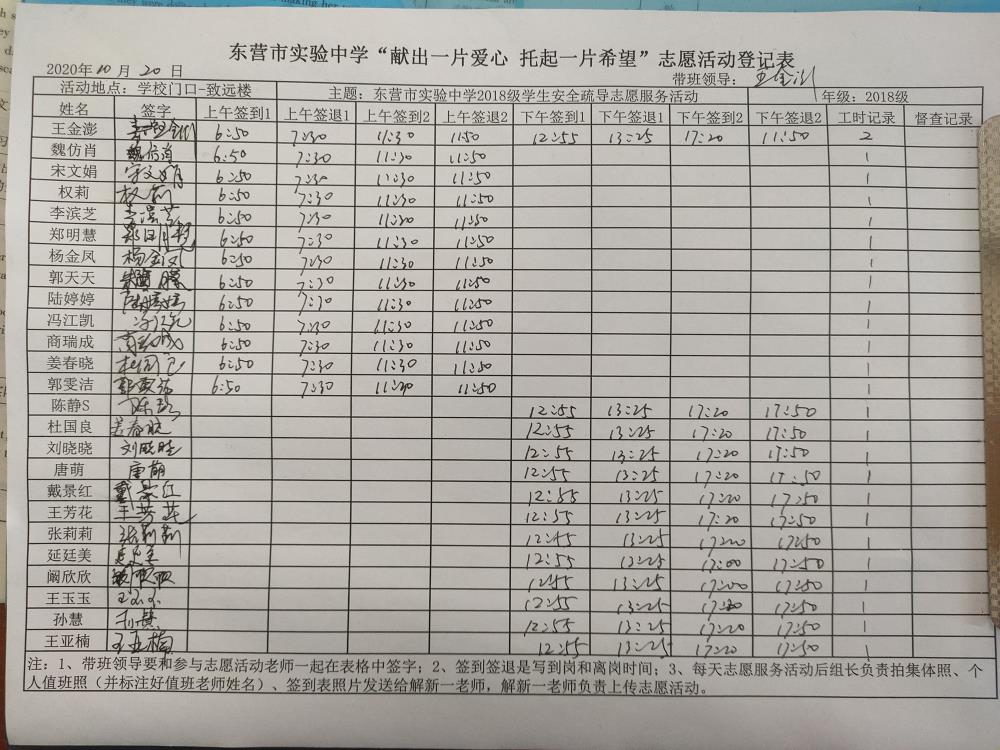 东营市实验中学“献出一片爱心 托起一片希望”志愿活动登记表
2020年10月20日 带班领导：
活动地点：学校门口-致远楼 主题：东营市实验中学2018级学生安全疏导志愿服务活动 年级：2018级
姓名 签字 上午签到1 上午签退1 上午签到2 上午签退2 下午签到1 下午签退1 下午签到2 下午签退2 工时记录 督查记录
王金澎 6:50 7:30 11:30 11:50 12:55 13:25 17:20 11:50 2
魏仿肖 魏仿肖 6:50 7:30 11:30 11:50 1
宋文娟 宋文娟 6:50 7:30 11:30 11:50 1
权莉 权莉 6:50 7:30 11:30 11:50 1
李滨芝 李滨芝 6:50 7:30 11:30 11:50 1
郑明慧 郑明慧 6:50 7:30 11:30 11:50 1
杨金凤 杨金凤 6:50 7:30 11:30 11:50 1
郭天天 6:50 7:30 11:30 11:50 1
陆婷婷 陆婷婷 6:50 7:30 11:30 11:50 1
冯江凯 冯江凯 6:50 7:30 11:30 11:50 1
商瑞成 商瑞成 6:50 7:30 11:30 11:50 1
姜春晓 杜国良 6:50 7:30 11:30 11:50 1
郭雯洁 郭雯洁 6:50 7:30 11:30 11:50 1
陈静S 陈静 12:55 13:25 17:20 17:50 1
杜国良 姜春晓 12:55 13:25 17:20 17:50 1
刘晓晓 刘晓晓 12:55 13:25 17:20 17:50 1
唐萌 唐萌 12:55 13:25 17:20 17:50 1
戴景红 戴景红 12:55 13:25 17:20 17:50 1
王芳花 王芳花 12:55 13:25 17:20 17:50 1
张莉莉 张莉莉 12:45 13:25 17:20 17:50 1
延廷美 延廷美 12:55 13:25 17:00 17:50 1
阚欣欣 12:55 13:25 17:20 17:50 1
王玉玉 王玉玉 12:55 13:25 17:20 17:50 1
孙慧 孙慧 12:55 13:25 17:20 17:50 1
王亚楠 王亚楠 12:55 13:25 17:20 17:50 1
注：1、带班领导要和参与志愿活动老师一起在表格中签字；2、签到签退是写到岗和离岗时间；3、每天志愿服务活动后组长负责拍集体照、个
人值班照（并标注好值班老师姓名）、签到表照片发送给解新一老师，解新一老师负责上传志愿活动。